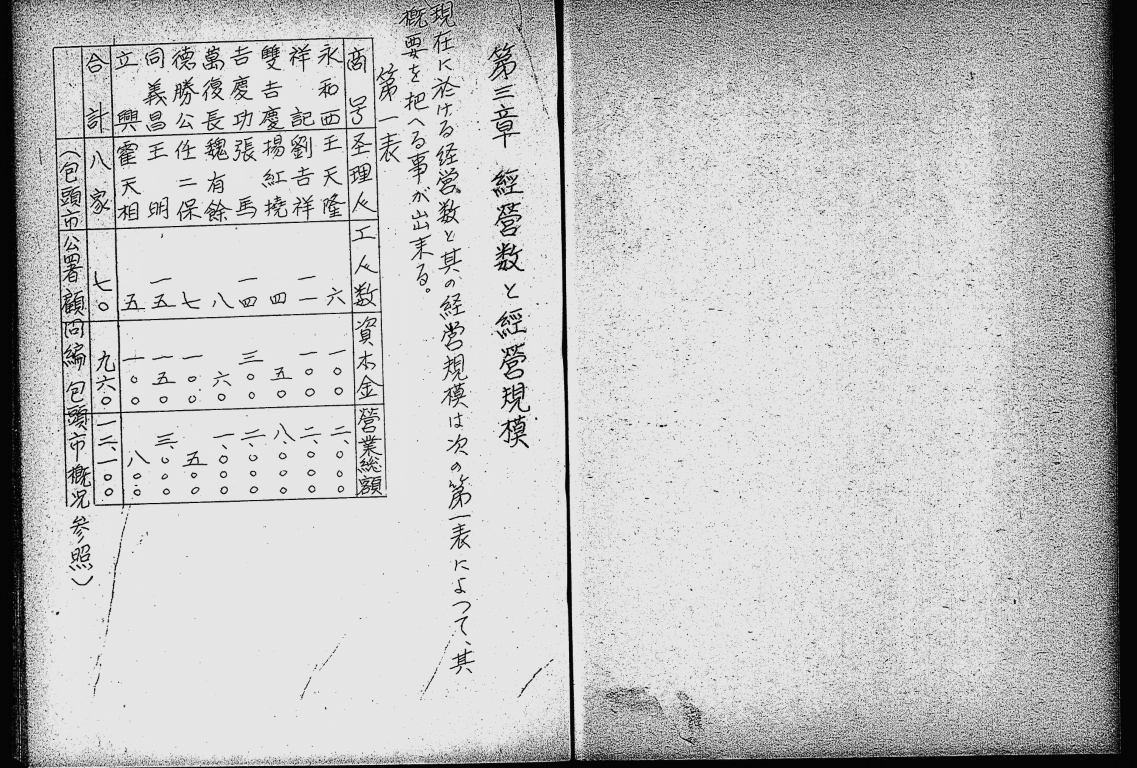 第三章 經營数と經營規模
現在に於ける経営数と其の経営規模は次の第一表によつて、其
概要を把へる事が出来る。
第一表
商号 圣理人 工人数 資本金 營業総額
永和西 王天隆 六 一〇〇 二、〇〇〇
祥記 劉吉祥 一一 一〇〇 二、〇〇〇
雙吉慶 楊紅撓 四 五〇 八、〇〇〇
吉慶功 張馬 一四 三〇〇 二、〇〇〇
萬復長 魏有餘 八 六〇 一、〇〇〇
德勝公 任二保 七 一〇〇 五〇〇
同義昌 王明 一五 一五〇 三、〇〇〇
立興 霍天相 五 一〇〇 八〇〇
合計 八家 七〇 九六〇 一二、一〇〇
(包頭市公署顧问編 包頭市概況参照)